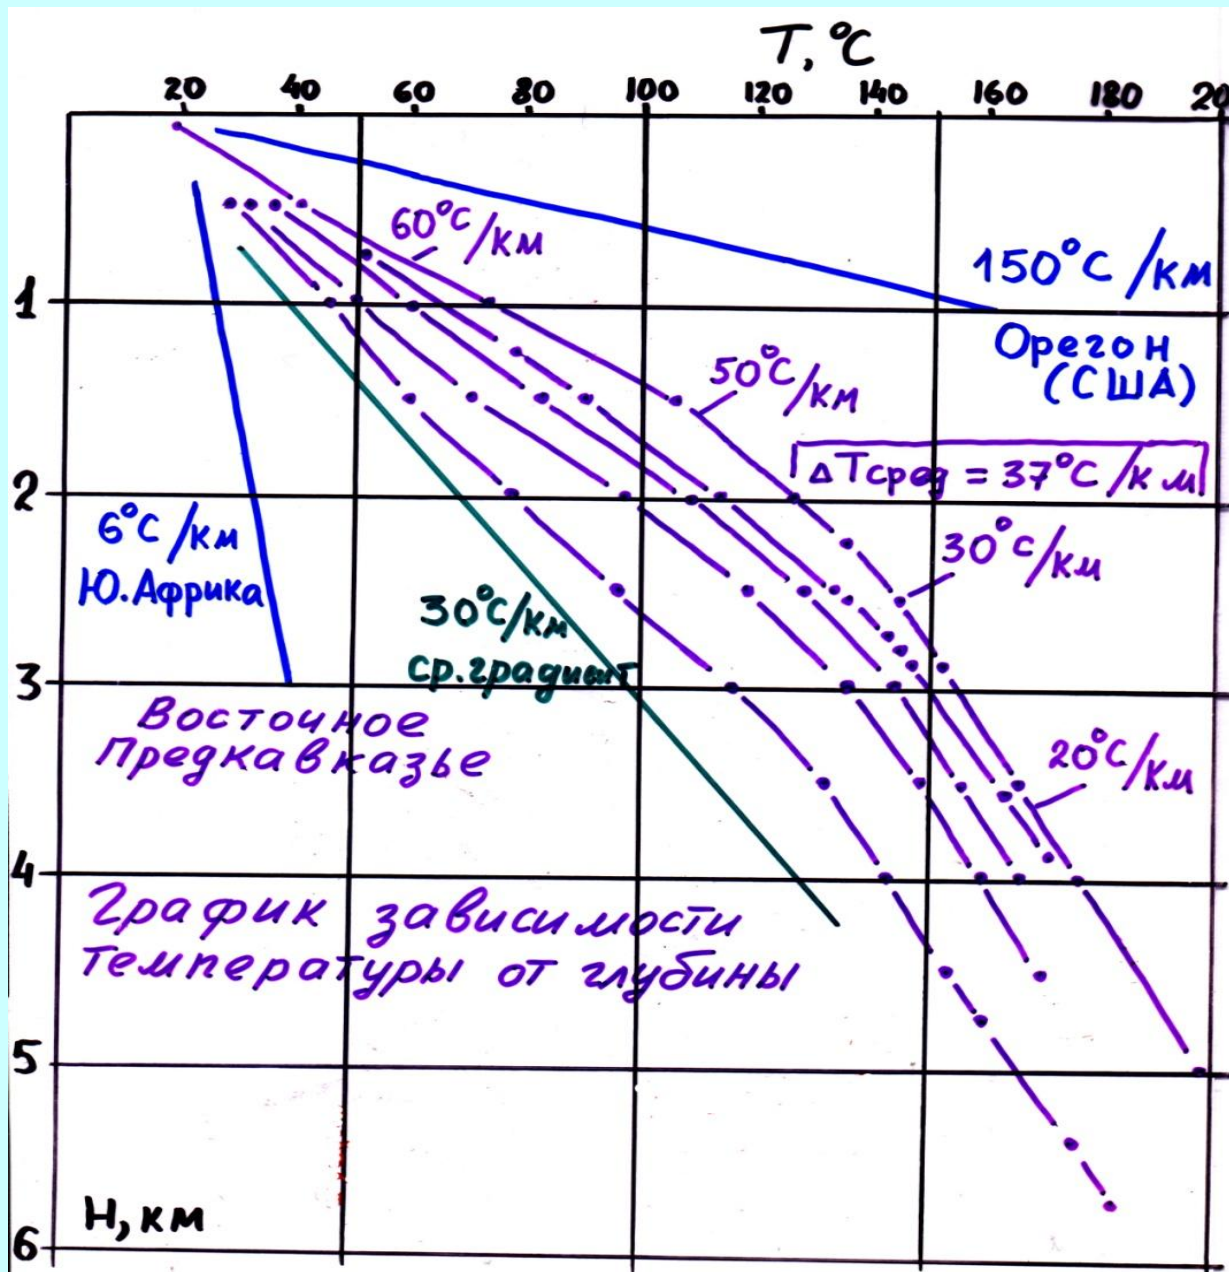 Т, °С
20 40 60 80 100 120 140 160 180 20
60°С/км
150°С/км
1
Орегон
(США)
50°С/км
ΔТсред = 37°С/км
2
6°С/км
Ю.Африка
30°С/км
30°С/км
ср.градиент
3
Восточное
Предкавказье
20°С/км
4
График зависимости
температуры от глубины
5
Н, км
6